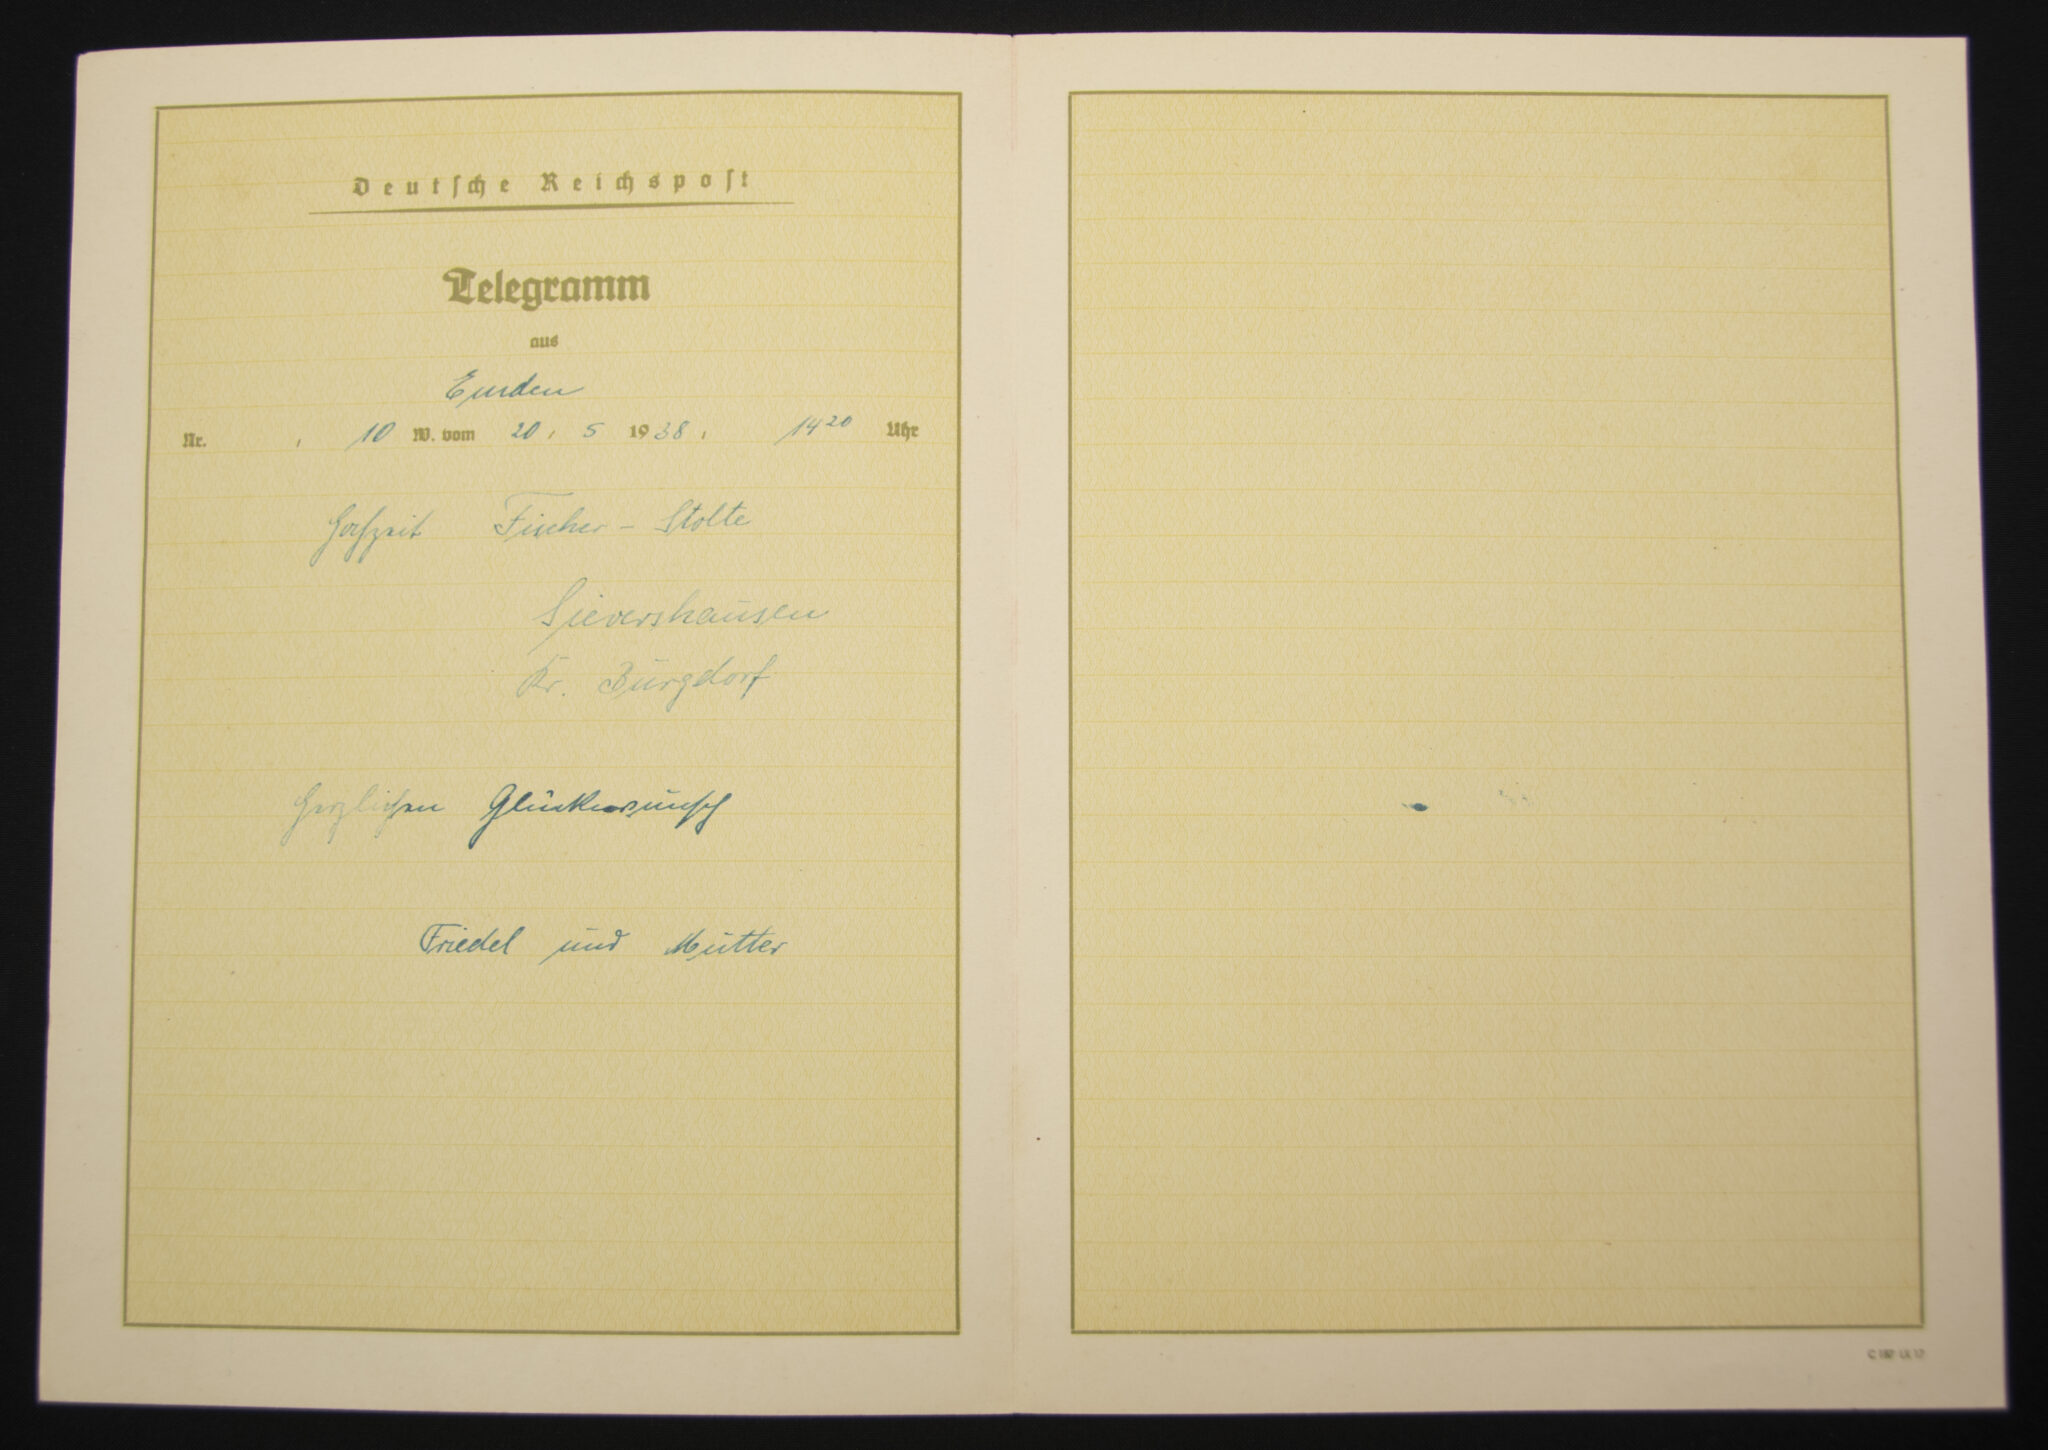 Deutsche Reichspost
Telegramm
aus
Emden
Nr. , 10 W. vom 20. 5 1938, 14 20 Uhr
Hochzeit Fischer - Stolte
Sievershausen
Kr. Burgdorf
Herzlichen Glückwunsch
Friedel und Mutter